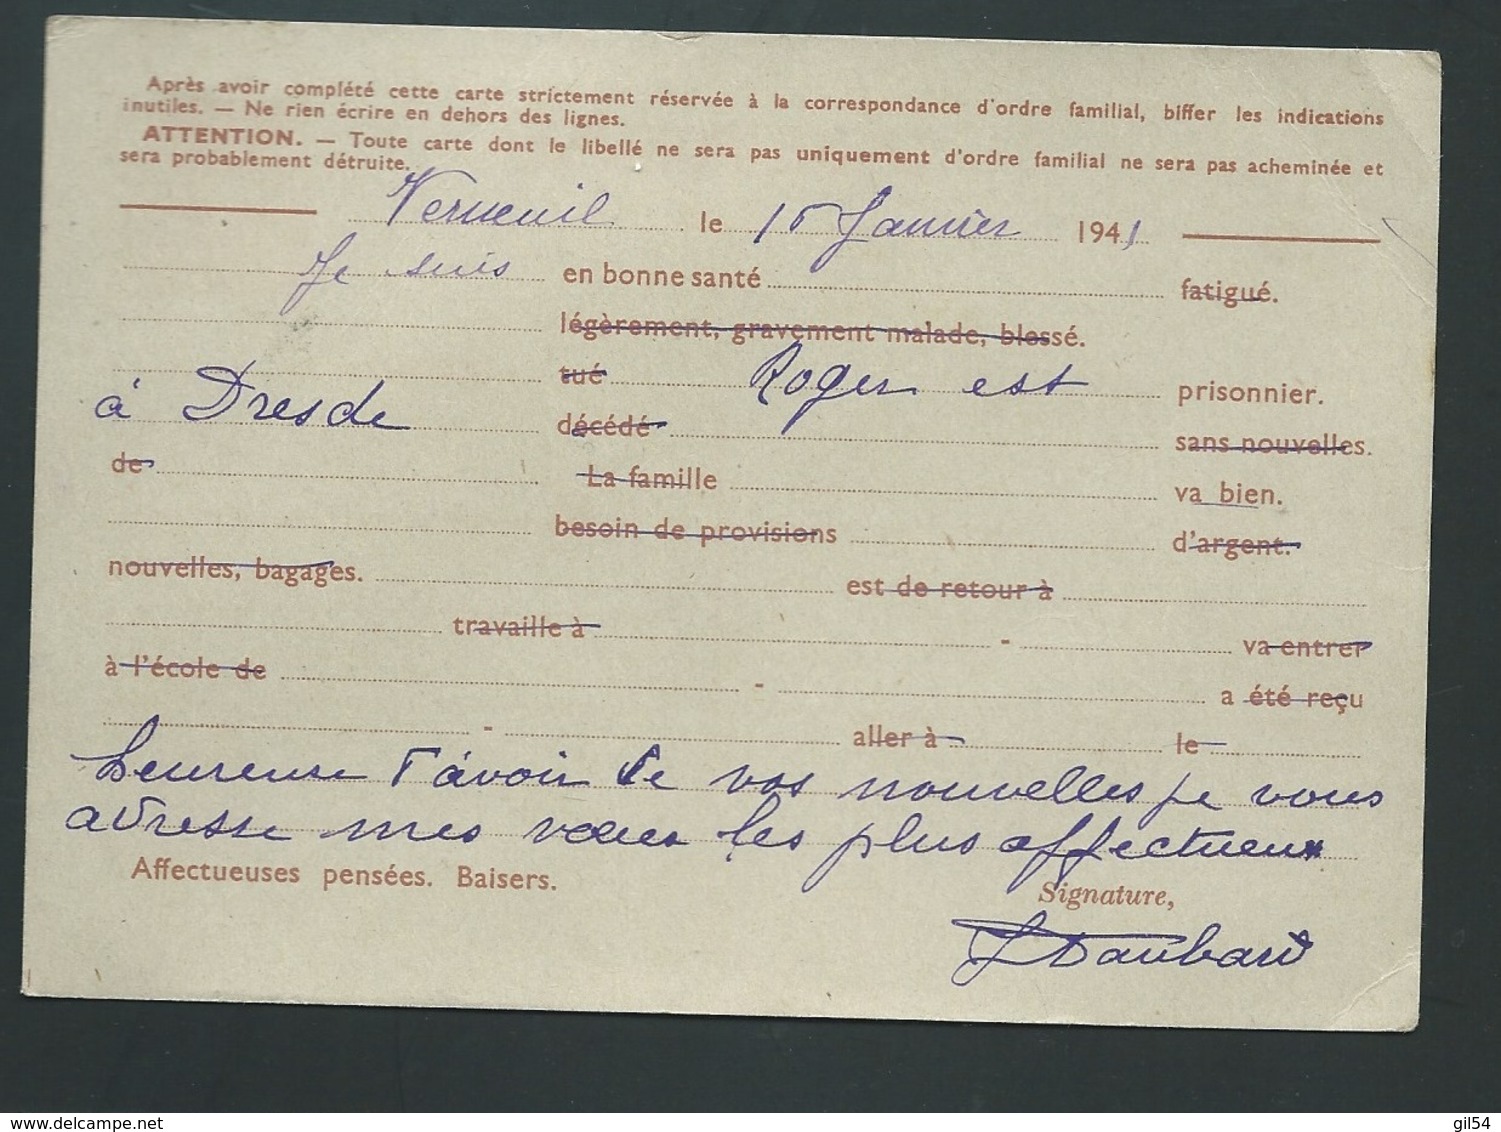 Après avoir complété cette carte strictement réservée à la correspondance d'ordre familial, biffer les indications
inutiles. — Ne rien écrire en dehors des lignes.
ATTENTION. — Toute carte dont le libellé ne sera pas uniquement d'ordre familial ne sera pas acheminée et
sera probablement détruite.
Verneuil le 15 Janvier 1941
Je suis en bonne santé fatigué.
légèrement, gravement malade, blessé.
tué Roger est prisonnier.
à Dresde décédé sans nouvelles.
de La famille va bien.
besoin de provisions d'argent.
nouvelles, bagages. est de retour à
travaille à - va entrer
à l'école de - a été reçu
- aller à le
heureuse d'avoir de vos nouvelles je vous
adresse mes vœux les plus affectueux
Affectueuses pensées. Baisers.
Signature,
Daubard
gil54